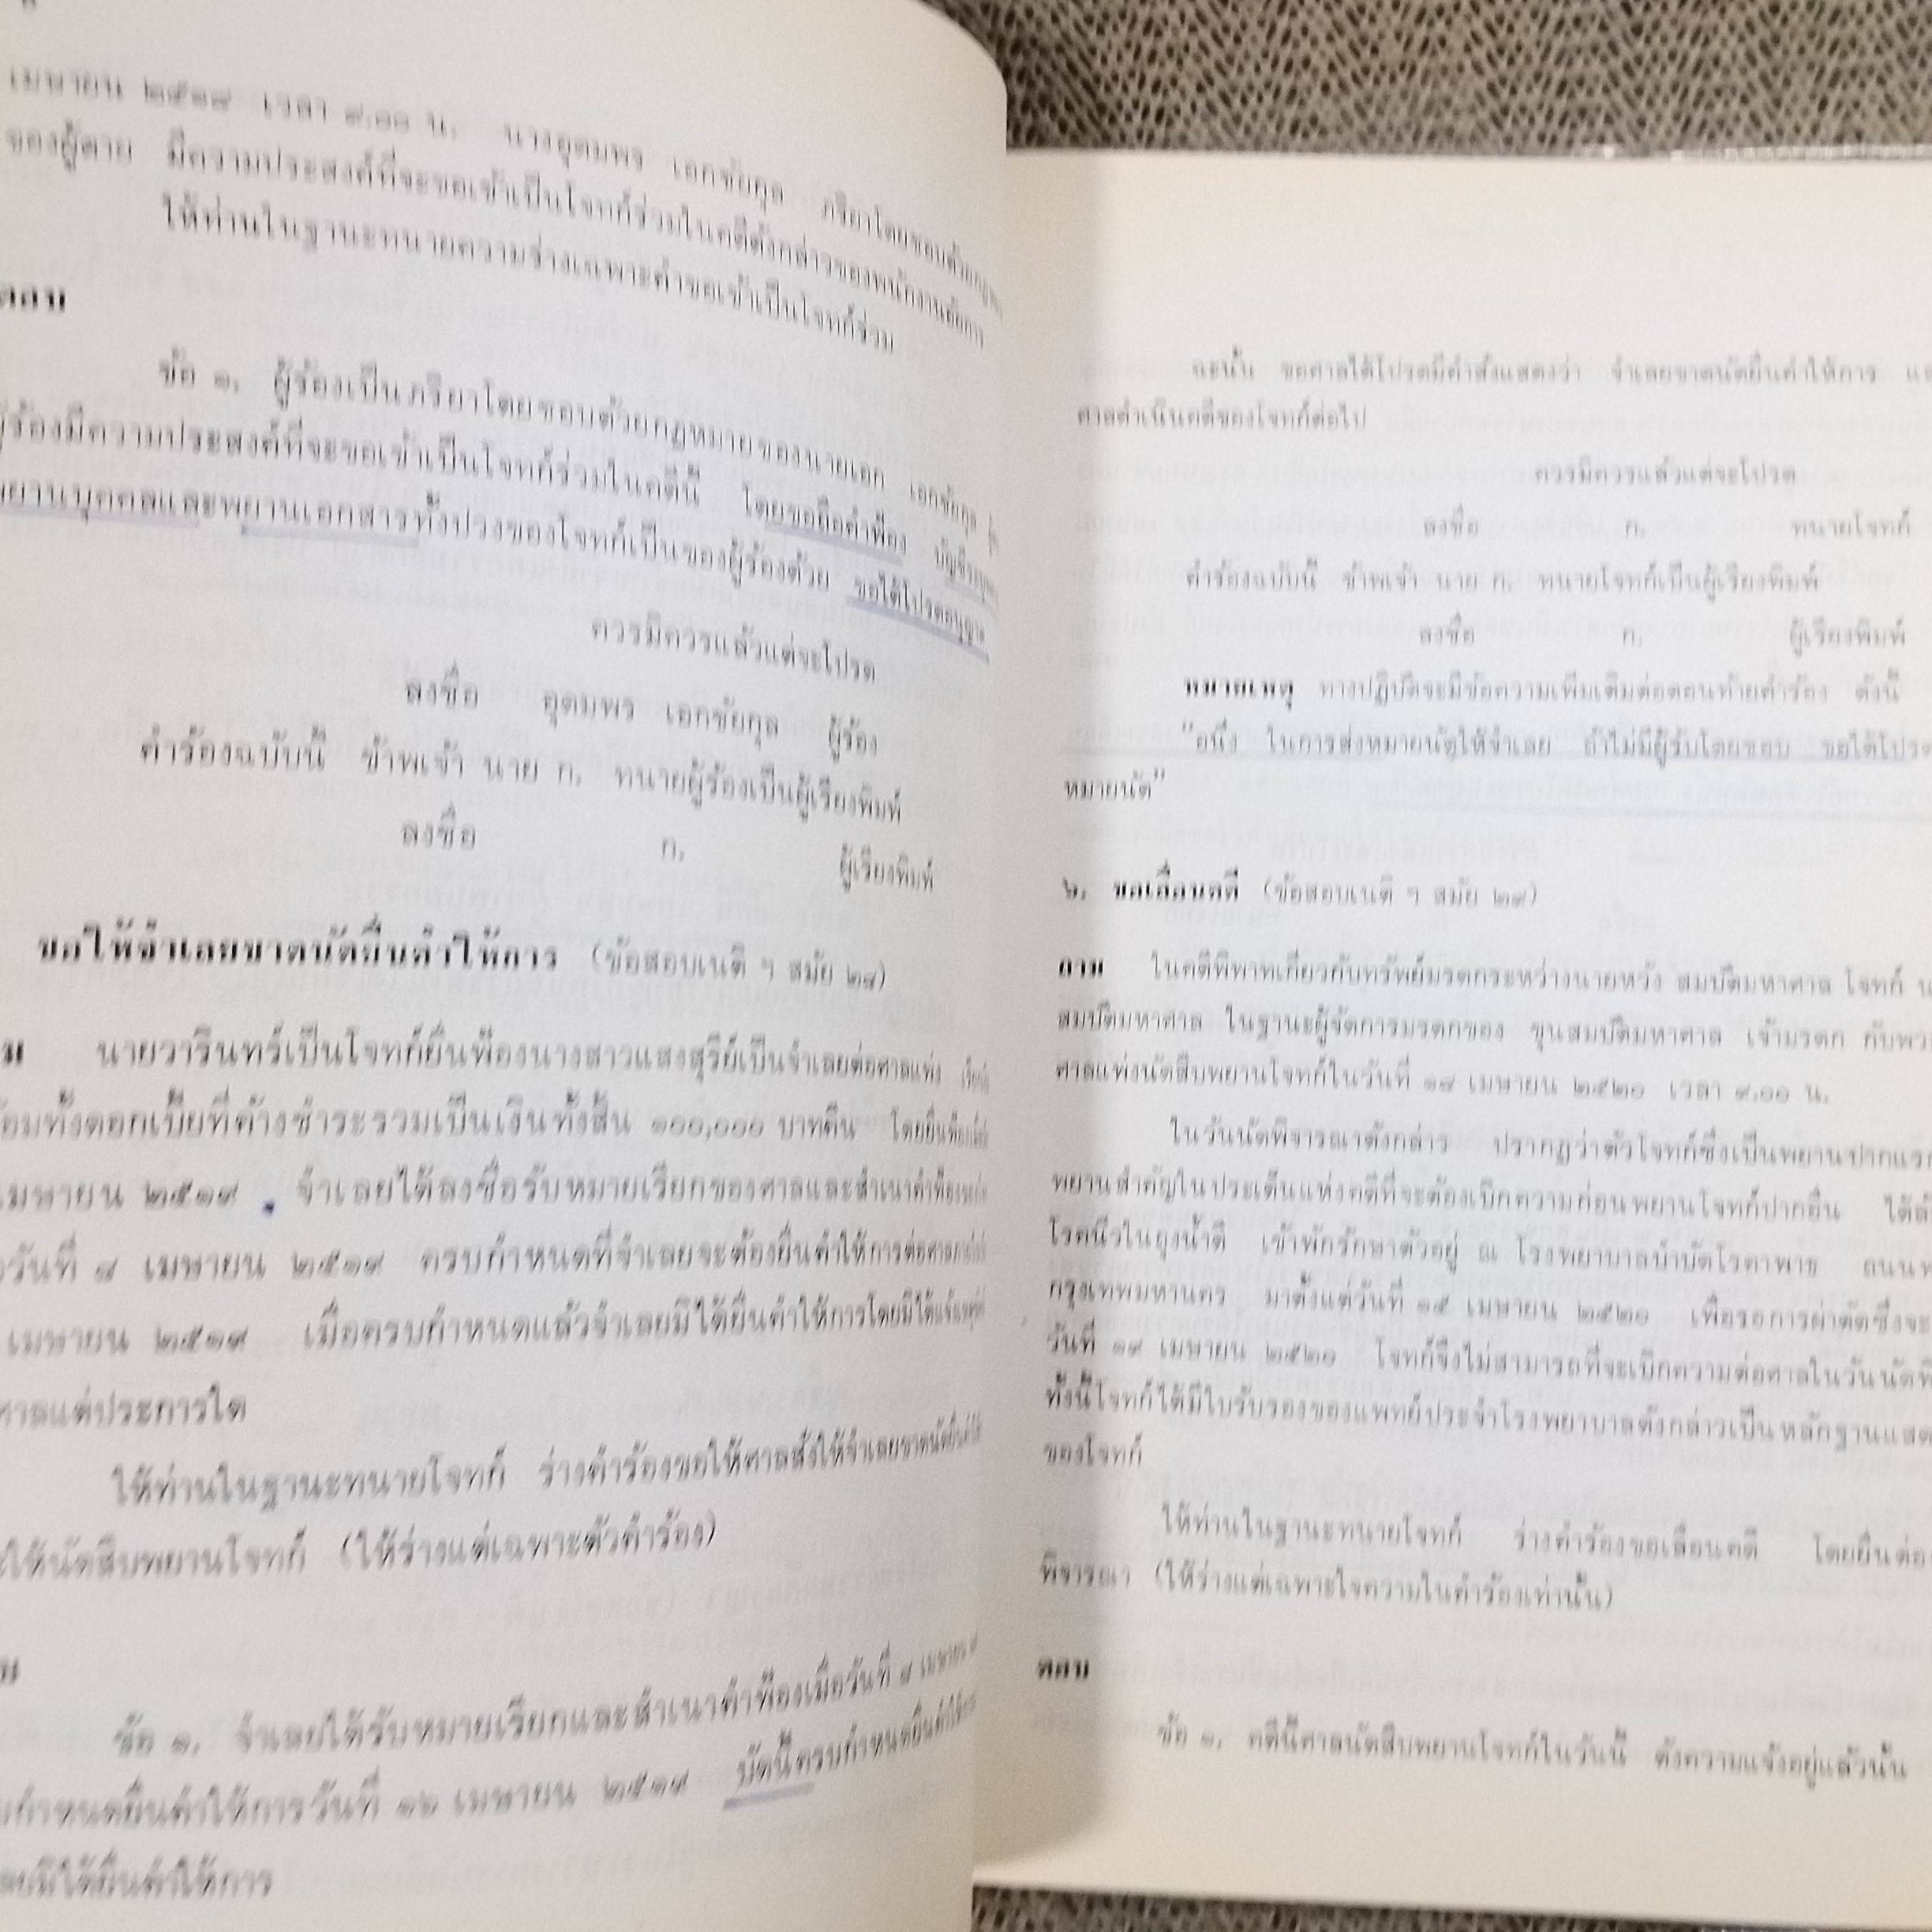 เมษายน ๒๕๑๙ เวลา ๙.๐๐ น. นางอุดมพร เอกชัยกุล ภริยาโดยชอบด้วย
ของผู้ตาย มีความประสงค์ที่จะขอเข้าเป็นโจทก์ร่วมในคดีดังกล่าวของพนักงานอัยการ
ให้ท่านในฐานะทนายความร่างเฉพาะคำขอเข้าเป็นโจทก์ร่วม
ตอบ
ข้อ ๑. ผู้ร้องเป็นภริยาโดยชอบด้วยกฎหมายของนายเอก เอกชัยกุล
ผู้ร้องมีความประสงค์ที่จะขอเข้าเป็นโจทก์ร่วมในคดีนี้ โดยขอถือคำฟ้อง
พยานบุคคลและพยานเอกสารทั้งปวงของโจทก์เป็นของผู้ร้องด้วย ขอได้โปรดอนุญาต
ควรมิควรแล้วแต่จะโปรด
ลงชื่อ อุดมพร เอกชัยกุล ผู้ร้อง
คำร้องฉบับนี้ ข้าพเจ้า นาย ก. ทนายผู้ร้องเป็นผู้เรียงพิมพ์
ลงชื่อ ก. ผู้เรียงพิมพ์
ขอให้จำเลยขาดนัดยื่นคำให้การ (ข้อสอบเนติ ฯ สมัย ๒๘)
นายวารินทร์เป็นโจทก์ยื่นฟ้องนางสาวแสงสุรีย์เป็นจำเลยต่อศาลแพ่ง
ทั้งดอกเบี้ยที่ค้างชำระรวมเป็นเงินทั้งสิ้น ๑๐๐,๐๐๐ บาทคืน โดยยื่นฟ้อง
เมษายน ๒๕๑๙ จำเลยได้ลงชื่อรับหมายเรียกของศาลและสำเนาคำฟ้อง
วันที่ ๘ เมษายน ๒๕๑๙ ครบกำหนดที่จำเลยจะต้องยื่นคำให้การต่อศาล
เมษายน ๒๕๑๙ เมื่อครบกำหนดแล้วจำเลยมิได้ยื่นคำให้การโดยมิได้
ศาลแต่ประการใด
ให้ท่านในฐานะทนายโจทก์ ร่างคำร้องขอให้ศาลสั่งให้จำเลยขาดนัด
ให้นัดสืบพยานโจทก์ (ให้ร่างแต่เฉพาะตัวคำร้อง)
ข้อ ๑. จำเลยได้รับหมายเรียกและสำเนาคำฟ้องเมื่อวันที่ ๘ เมษายน
กำหนดยื่นคำให้การวันที่ ๑๖ เมษายน ๒๕๑๙ บัดนี้ครบกำหนดยื่นคำให้
มิได้ยื่นคำให้การ
ฉะนั้น ขอศาลได้โปรดมีคำสั่งแสดงว่า จำเลยขาดนัดยื่นคำให้การ
ศาลดำเนินคดีของโจทก์ต่อไป
ควรมิควรแล้วแต่จะโปรด
ลงชื่อ ก. ทนายโจทก์
คำร้องฉบับนี้ ข้าพเจ้า นาย ก. ทนายโจทก์เป็นผู้เรียงพิมพ์
ลงชื่อ ก. ผู้เรียงพิมพ์
หมายเหตุ ทางปฏิบัติจะมีข้อความเพิ่มเติมต่อตอนท้ายคำร้อง ดังนี้
"อนึ่ง ในการส่งหมายนัดให้จำเลย ถ้าไม่มีผู้รับโดยชอบ ขอได้โปรด
หมายนัด"
๖. ขอเลื่อนคดี (ข้อสอบเนติ ฯ สมัย ๒๙)
ถาม ในคดีพิพาทเกี่ยวกับทรัพย์มรดกระหว่างนายหวัง สมบัติมหาศาล โจทก์
สมบัติมหาศาล ในฐานะผู้จัดการมรดกของ ขุนสมบัติมหาศาล เจ้ามรดก กับพวก
ศาลแพ่งนัดสืบพยานโจทก์ในวันที่ ๑๘ เมษายน ๒๕๒๐ เวลา ๙.๐๐ น.
ในวันนัดพิจารณาดังกล่าว ปรากฏว่าตัวโจทก์ซึ่งเป็นพยานปากแรก
พยานสำคัญในประเด็นแห่งคดีที่จะต้องเบิกความก่อนพยานโจทก์ปากอื่น ได้
โรคนิ่วในถุงน้ำดี เข้าพักรักษาตัวอยู่ ณ โรงพยาบาลบำบัดโรคาพาธ ถนน
กรุงเทพมหานคร มาตั้งแต่วันที่ ๑๕ เมษายน ๒๕๒๐ เพื่อรอการผ่าตัดซึ่งจะ
วันที่ ๑๙ เมษายน ๒๕๒๐ โจทก์จึงไม่สามารถที่จะเบิกความต่อศาลในวันนัด
ทั้งนี้โจทก์ได้มีใบรับรองของแพทย์ประจำโรงพยาบาลดังกล่าวเป็นหลักฐานแสดง
ของโจทก์
ให้ท่านในฐานะทนายโจทก์ ร่างคำร้องขอเลื่อนคดี โดยยื่นต่อ
พิจารณา (ให้ร่างแต่เฉพาะใจความในคำร้องเท่านั้น)
ตอบ
ข้อ ๑. คดีนี้ศาลนัดสืบพยานโจทก์ในวันนี้ ดังความแจ้งอยู่แล้วนั้น